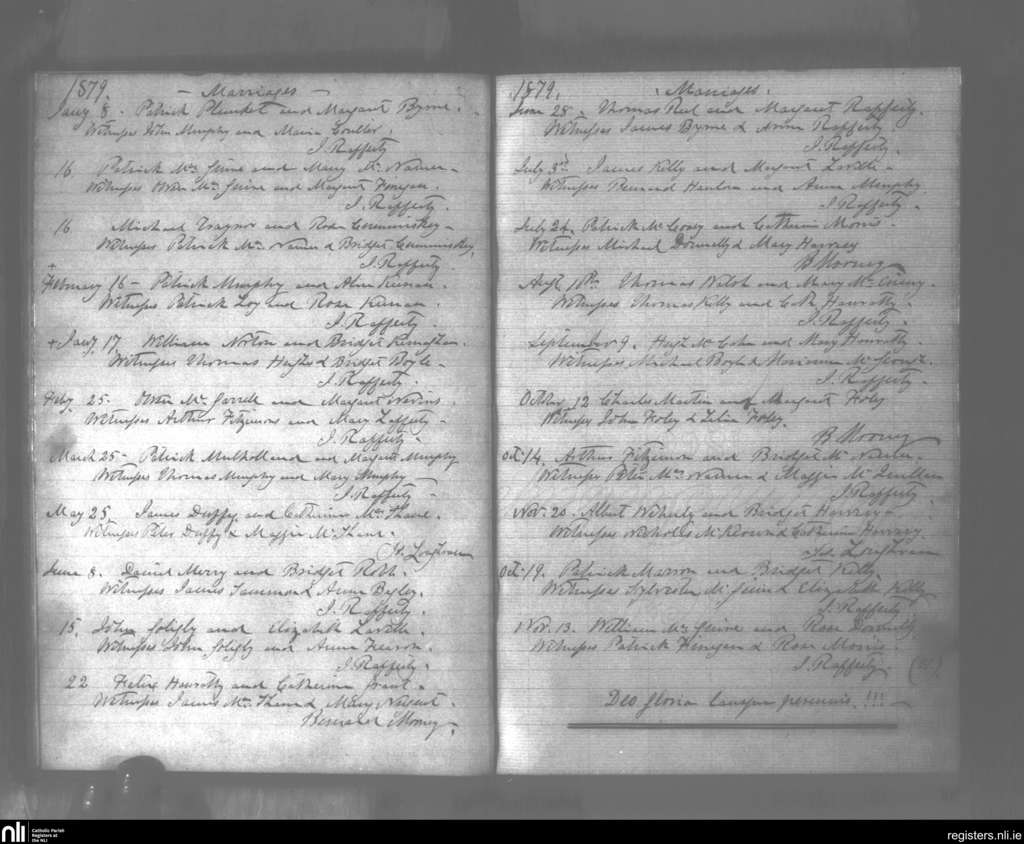 1879. — Marriages —
Jany 8 - Patrick Plunket and Margaret Byrne.
Witnesses John Murphy and Maria Coulter.
J. Rafferty
16 Patrick Mc Guire and Mary Mc Namee -
Witnesses Owen Mc Guire and Margaret Finegan.
J. Rafferty.
16 Michael Traynor and Rose Cummiskey -
Witnesses Patrick Mc Namee & Bridget Cummiskey,
J. Rafferty.
February 16 - Patrick Murphy and Kieran.
Witnesses Patrick Loy and Rose Kieran.
J. Rafferty.
+ Jany. 17 William Norton and Bridget
Witnesses Thomas & Bridget Boyle -
J. Rafferty.
Feby. 25 - Owen Mc Garrell and Margaret Nevins.
Witnesses Arthur Fitzimons and Mary Lafferty -
J. Rafferty -
March 25 - Patrick Mulholland and Margaret Murphy
Witnesses Thomas Murphy and Mary Murphy
J. Rafferty -
May 25 James Duffy and Catherine Mc Shane.
Witnesses Peter Duffy & Maggie Mc Shane.
Loughran
June 8. Daniel Merry and Bridget
Witnesses James & Anne Begley.
J. Rafferty.
15. John and Elizabeth Lavelle.
Witnesses John and Anne Fearon.
J. Rafferty.
22 Felix Hanratty and Catherine Grant -
Witnesses James Mc Shane & Mary Nugent.
Bernard Mooney.
1879. Marriages.
June 28 - Thomas and Margaret Rafferty.
Witnesses James Byrne & Anne Rafferty
J. Rafferty.
July 3rd James Kelly and Margaret Lavelle -
Witnesses Bernard Hanlon and Anne Murphy
J. Rafferty -
July 24, Patrick Mc Cooey and Catherine Morris -
Witnesses Michael Donnelly & Mary Harvey
B Mooney
Augt. Thomas Walsh and Mary Mc
Witnesses Thomas Kelly and Cath Hanratty.
J. Rafferty -
September 9. Mc Cahn and Mary Hanratty.
Witnesses Michael Boyle &
J. Rafferty -
October 12 Charles Martin and Margaret Foley
Witnesses John Foley & Foley.
B Mooney
Oct. 14. Arthur Fitzimon and Bridget Mc Namee -
Witnesses Peter Mc Namee & Maggie Mc Quillan
J. Rafferty
Nov. 20. Albert and Bridget Harvey -
Witnesses Nicholas Mc Keown & Catherine Harvey.
Loughran
Oct. 19. Patrick Marron and Bridget Kelly.
Witnesses Sylvester Mc & Elizabeth Kelly
J. Rafferty
Nov. 13. William Mc Guire and Rose Donnelly
Witnesses Patrick Finegan & Rose Morris.
J. Rafferty.
Deo gloria !!! -
nli Catholic Parish
Registers at
the NLI
registers.nli.ie